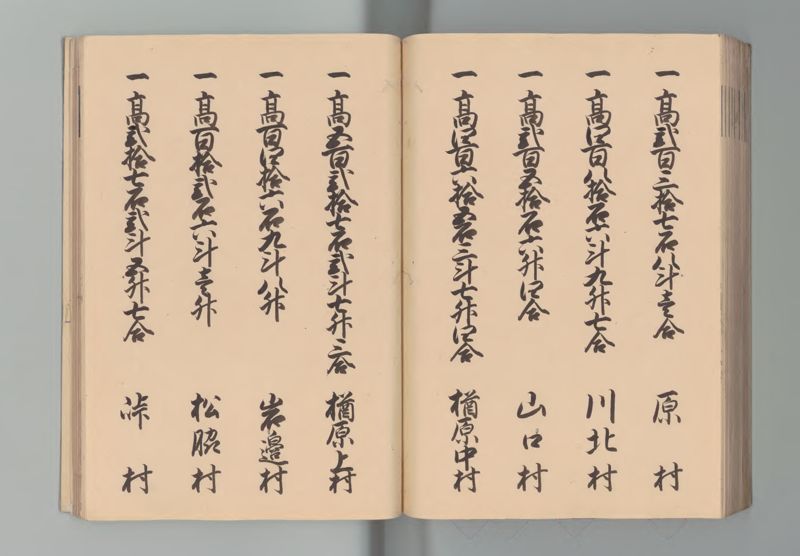 一 高貳百三拾七石八斗壱合 原村
一 高四百八拾石六斗九升七合 川北村
一 高貳百五拾石六升四合 山口村
一 高四百六拾五石三斗七升四合 楢原中村
一 高五百貳拾七石貳斗七升三合 楢原上村
一 高百四拾六石九斗八升 岩邊村
一 高百拾貳石六斗壱升 松脇村
一 高貳拾七石貳斗五升七合 峠村